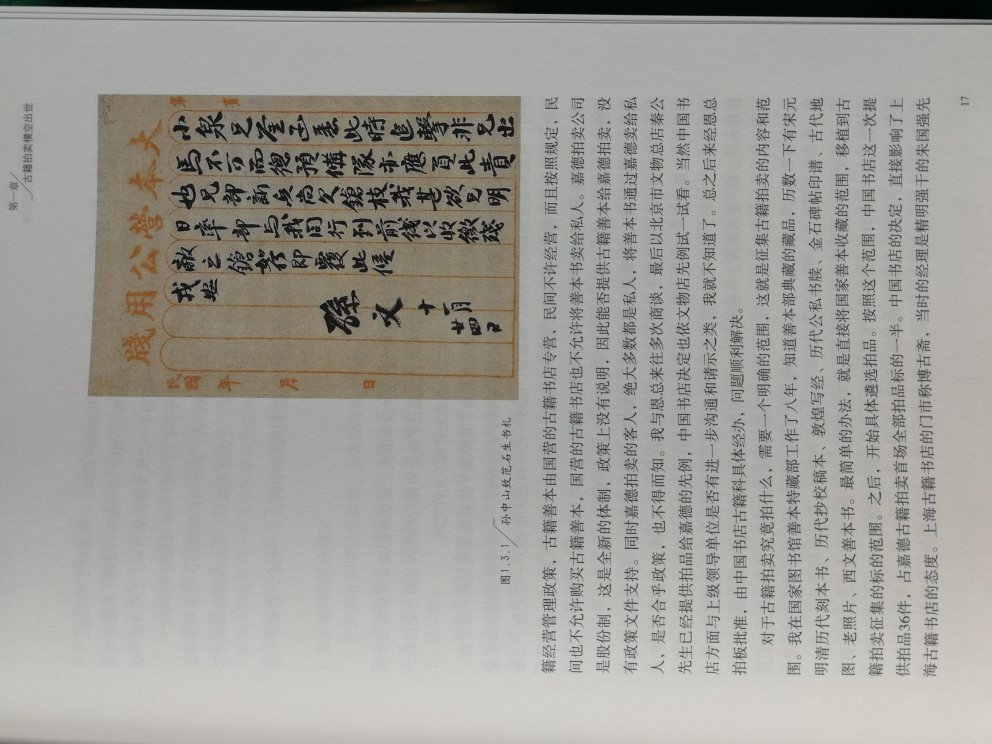 第一章
古籍拍卖横空出世
第 頁
大本營公用牋
小泉兄鑒函悉此時追擊非兄出
馬不可而總預備隊亦應負此責
也兄部新兵尚欠鎗枝我甚欲兄明
日率部與我同行到前線以收繳殘
敵之鎗若何即覆此候
戎安
孫文 十一月
廿四日
民國 年 月 日
图1.3.1 孙中山致范石生书札
籍经营管理政策，古籍善本由国营的古籍书店专营，民间不许经营，而且按照规定，民
间也不允许购买古籍善本，国营的古籍书店也不允许将善本书卖给私人。嘉德拍卖公司
是股份制，这是全新的体制，政策上没有说明，因此能否提供古籍善本给嘉德拍卖，没
有政策文件支持。同时嘉德拍卖的客人，绝大多数都是私人，将善本书通过嘉德卖给私
人，是否合乎政策，也不得而知。我与恩总来往多次商谈，最后以北京市文物总店秦公
先生已经提供拍品给嘉德的先例，中国书店决定也依文物店先例试一试看。当然中国书
店方面与上级领导单位是否有进一步沟通和请示之类，我就不知道了。总之后来经恩总
拍板批准，由中国书店古籍科具体经办，问题顺利解决。
对于古籍拍卖究竟拍什么，需要一个明确的范围，这就是征集古籍拍卖的内容和范
围。我在国家图书馆善本特藏部工作了八年，知道善本部典藏的藏品，历数一下有宋元
明清历代刻本书、历代抄校稿本、敦煌写经、历代公私书牍、金石碑帖印谱、古代地
图、老照片、西文善本书。最简单的办法，就是直接将国家善本收藏的范围，移植到古
籍拍卖征集的标的范围。之后，开始具体遴选拍品。按照这个范围，中国书店这一次提
供拍品36件，占嘉德古籍拍卖首场全部拍品标的一半。中国书店的决定，直接影响了上
海古籍书店的态度。上海古籍书店的门市称博古斋，当时的经理是精明强干的朱国强先
17